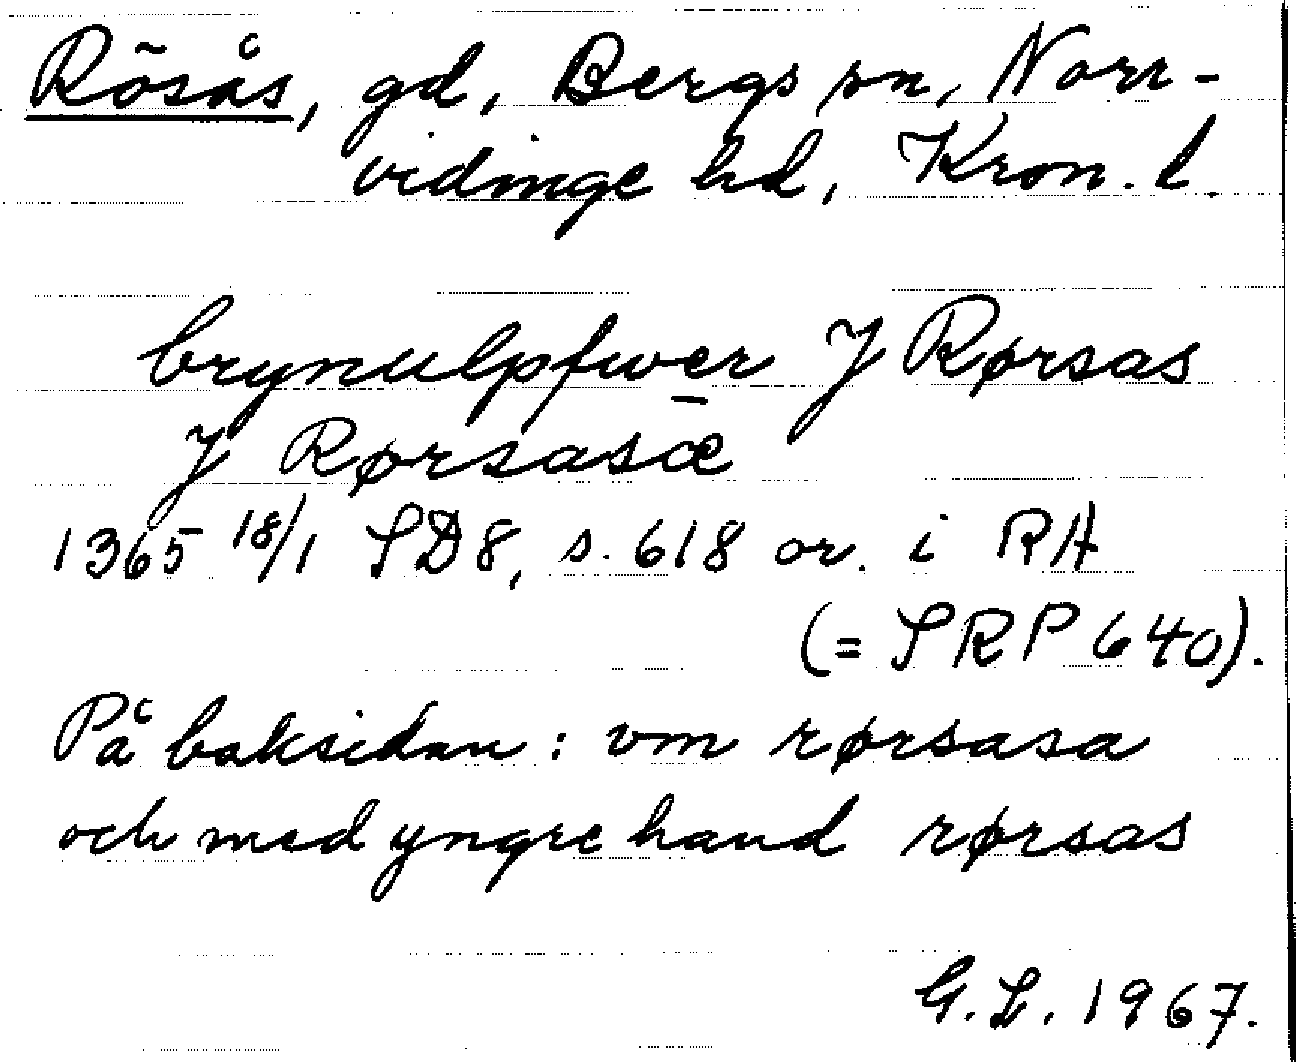 Rösås, gd, Bergs sn, Norr-
vidinge hd, Kron. l.
brynulpfwer J Rørsas
J Rørsasæ̅
1365 18/1 SD8, s. 618 or. i RA
(= SRP 640).
På baksidan: vm rørsasa
och med yngre hand rørsas
G.L. 1967.